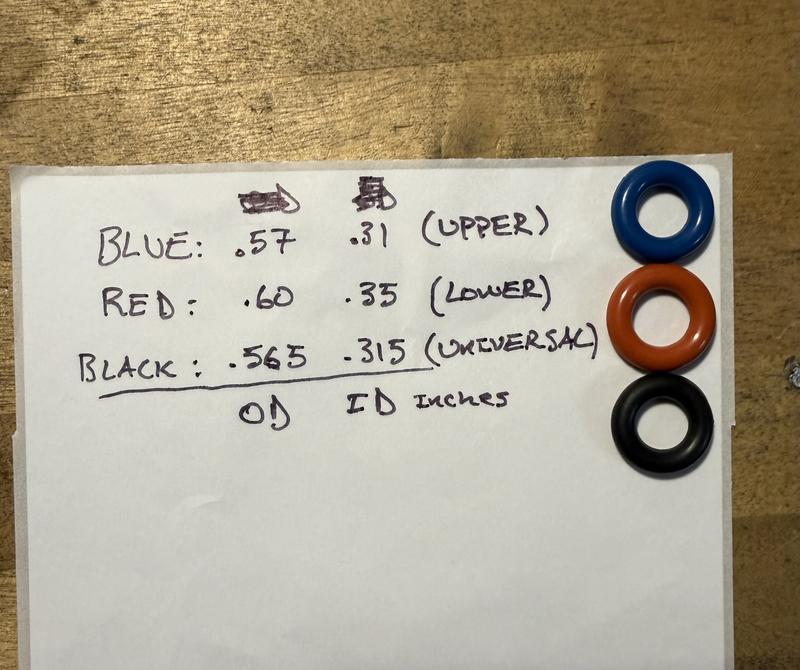 BLUE: .57 .31 (UPPER)
RED: .60 .35 (LOWER)
BLACK: .565 .315 (UNIVERSAL)
OD ID Inches